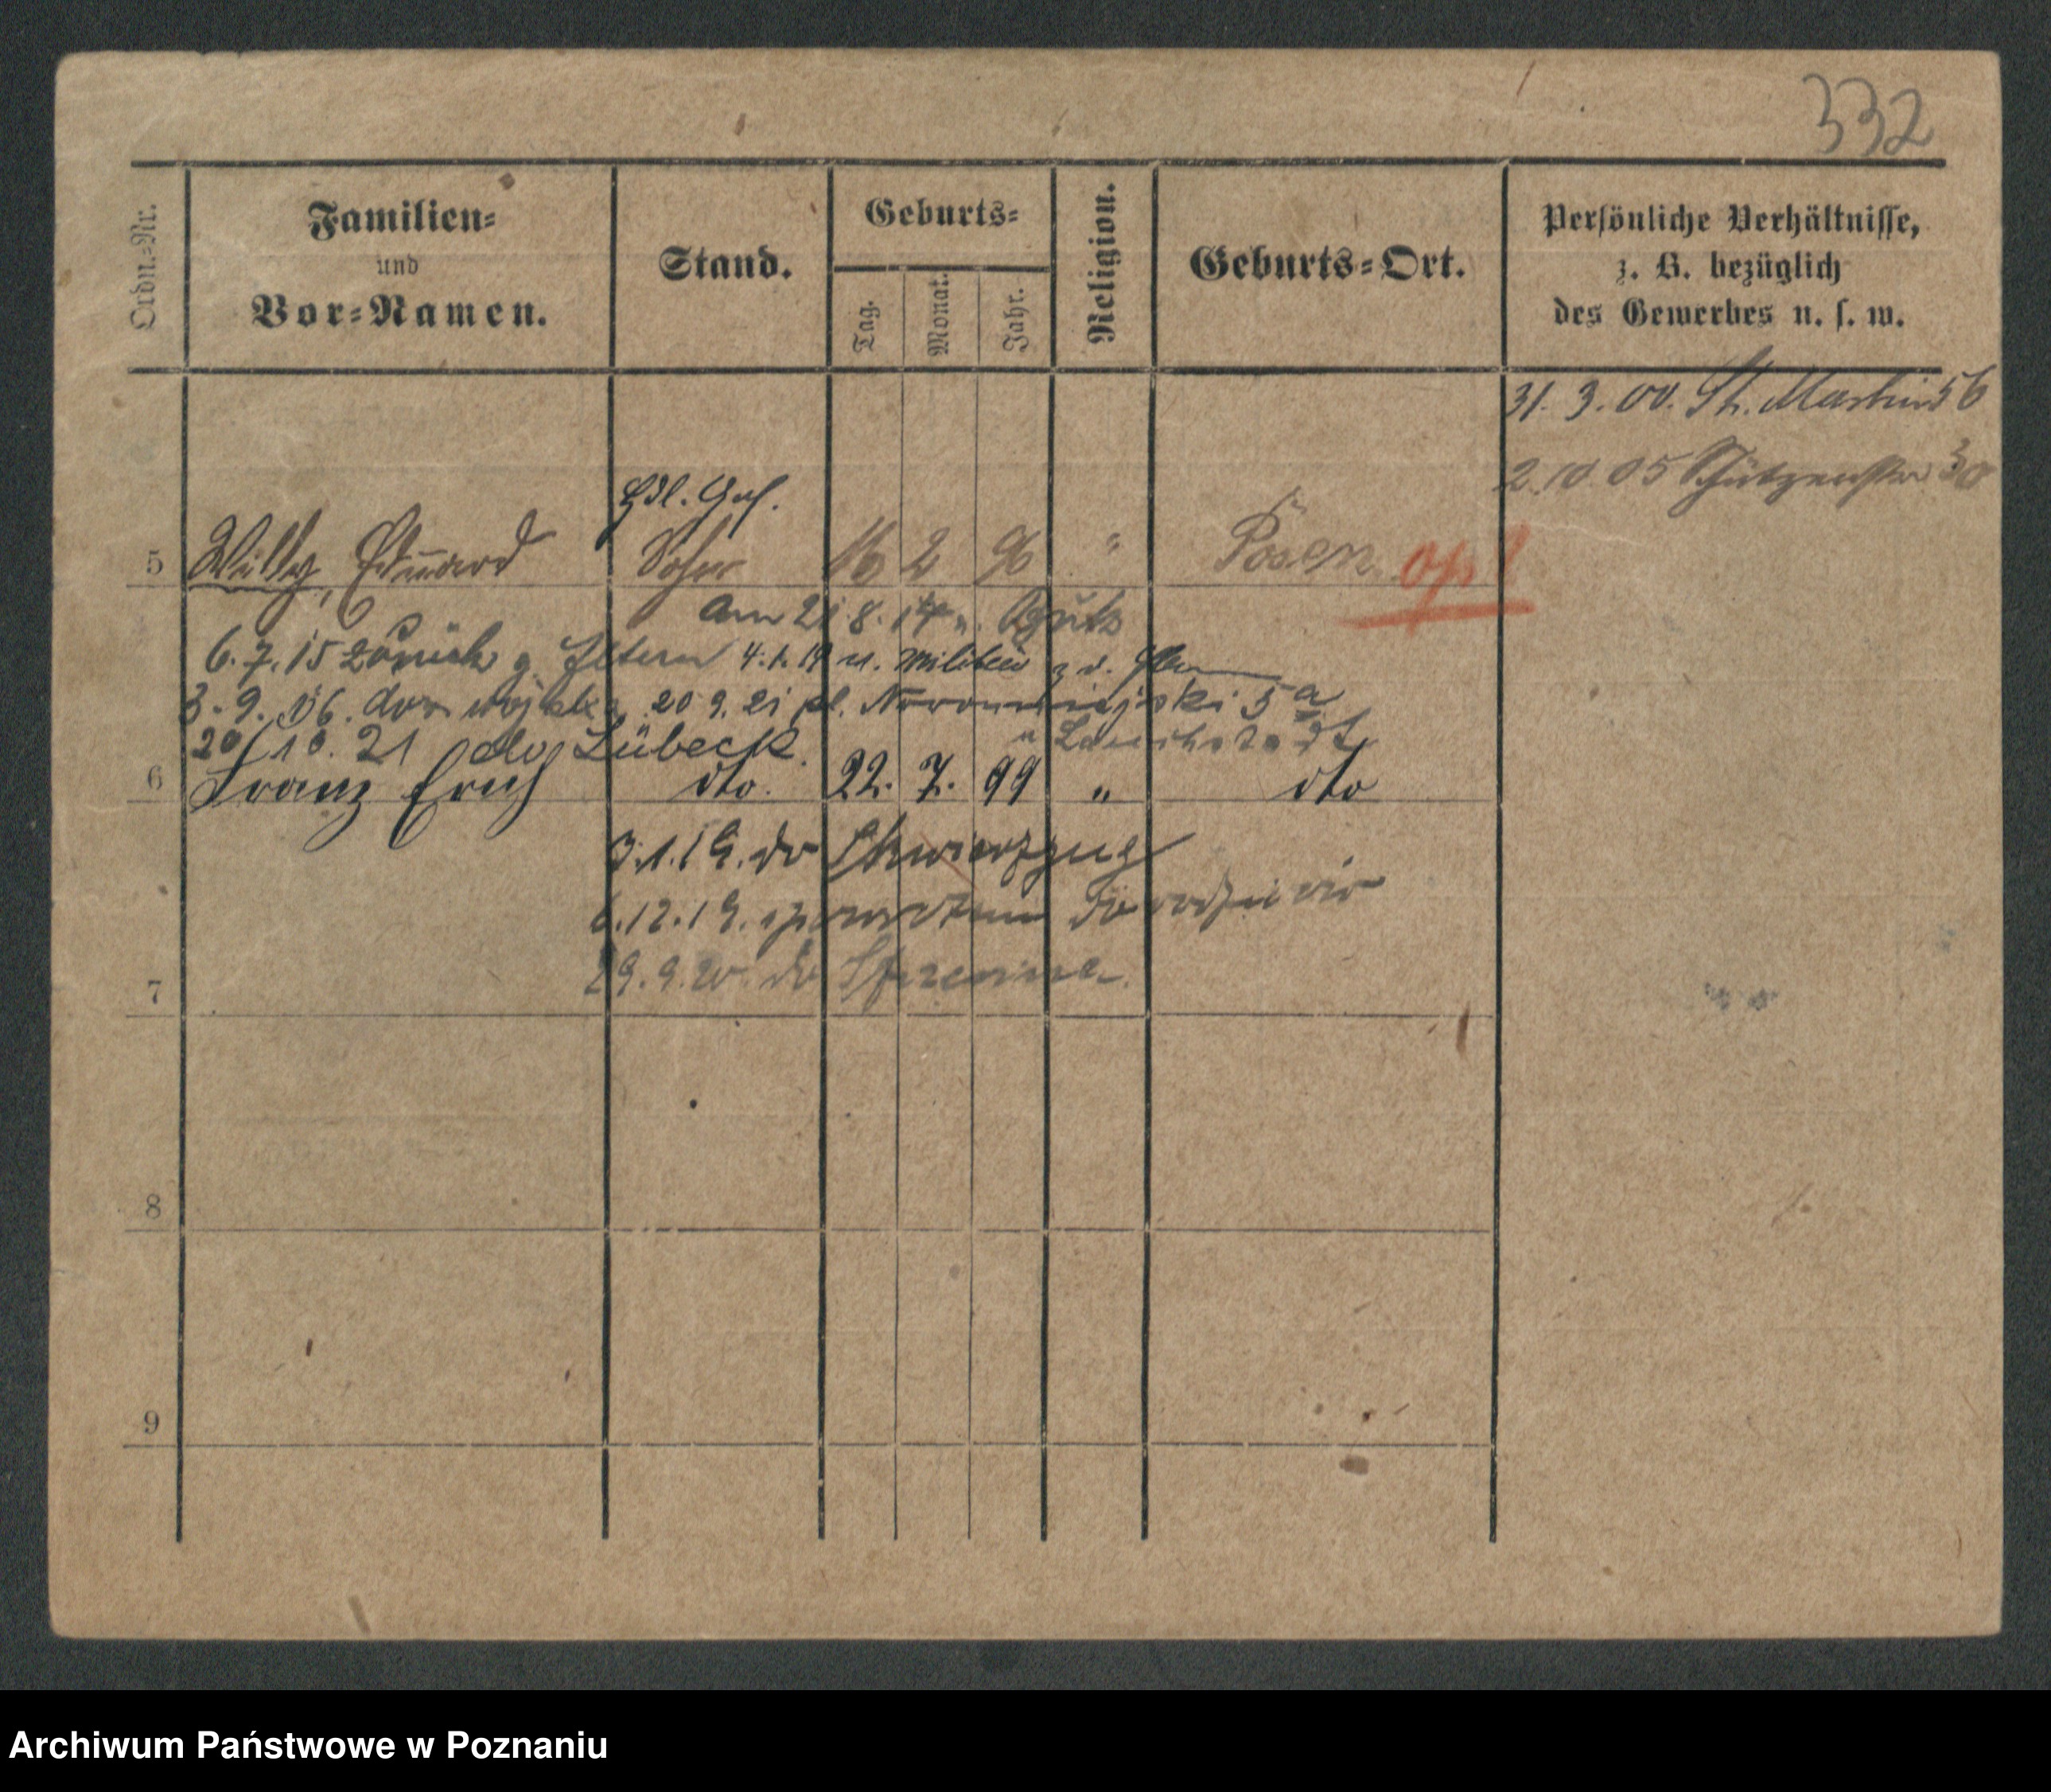 332
Ordn.-Nr.
Familien-
und
Vor-Namen.
Stand.
Geburts-
Tag.
Monat.
Jahr.
Religion.
Geburts-Ort.
Persönliche Verhältnisse,
z. B. bezüglich
des Gewerbes u. s. w.
31. 3. 00. St. Martin 56
2. 10. 05 Schützenstr 30
Hdl. Gehf.
5 Willy, Eduard Sohn 16 2 96 " Posen opt
am 21 8. 14 n.
6. 7. 15 zurück z. Eltern 4. 1. 19 v. Militär z. d.
3. 9. do wojska 20 9. 21 pl. Nowomiejski 5 a
20/10. 21 do Lübeck.
6 Franz Erich dto. 22. 7. 99 " dto
3. 1. 19. do
6. 12. 19. z powrotem do rodziców
29. 9. 20. do
7
8
9
Archiwum Państwowe w Poznaniu